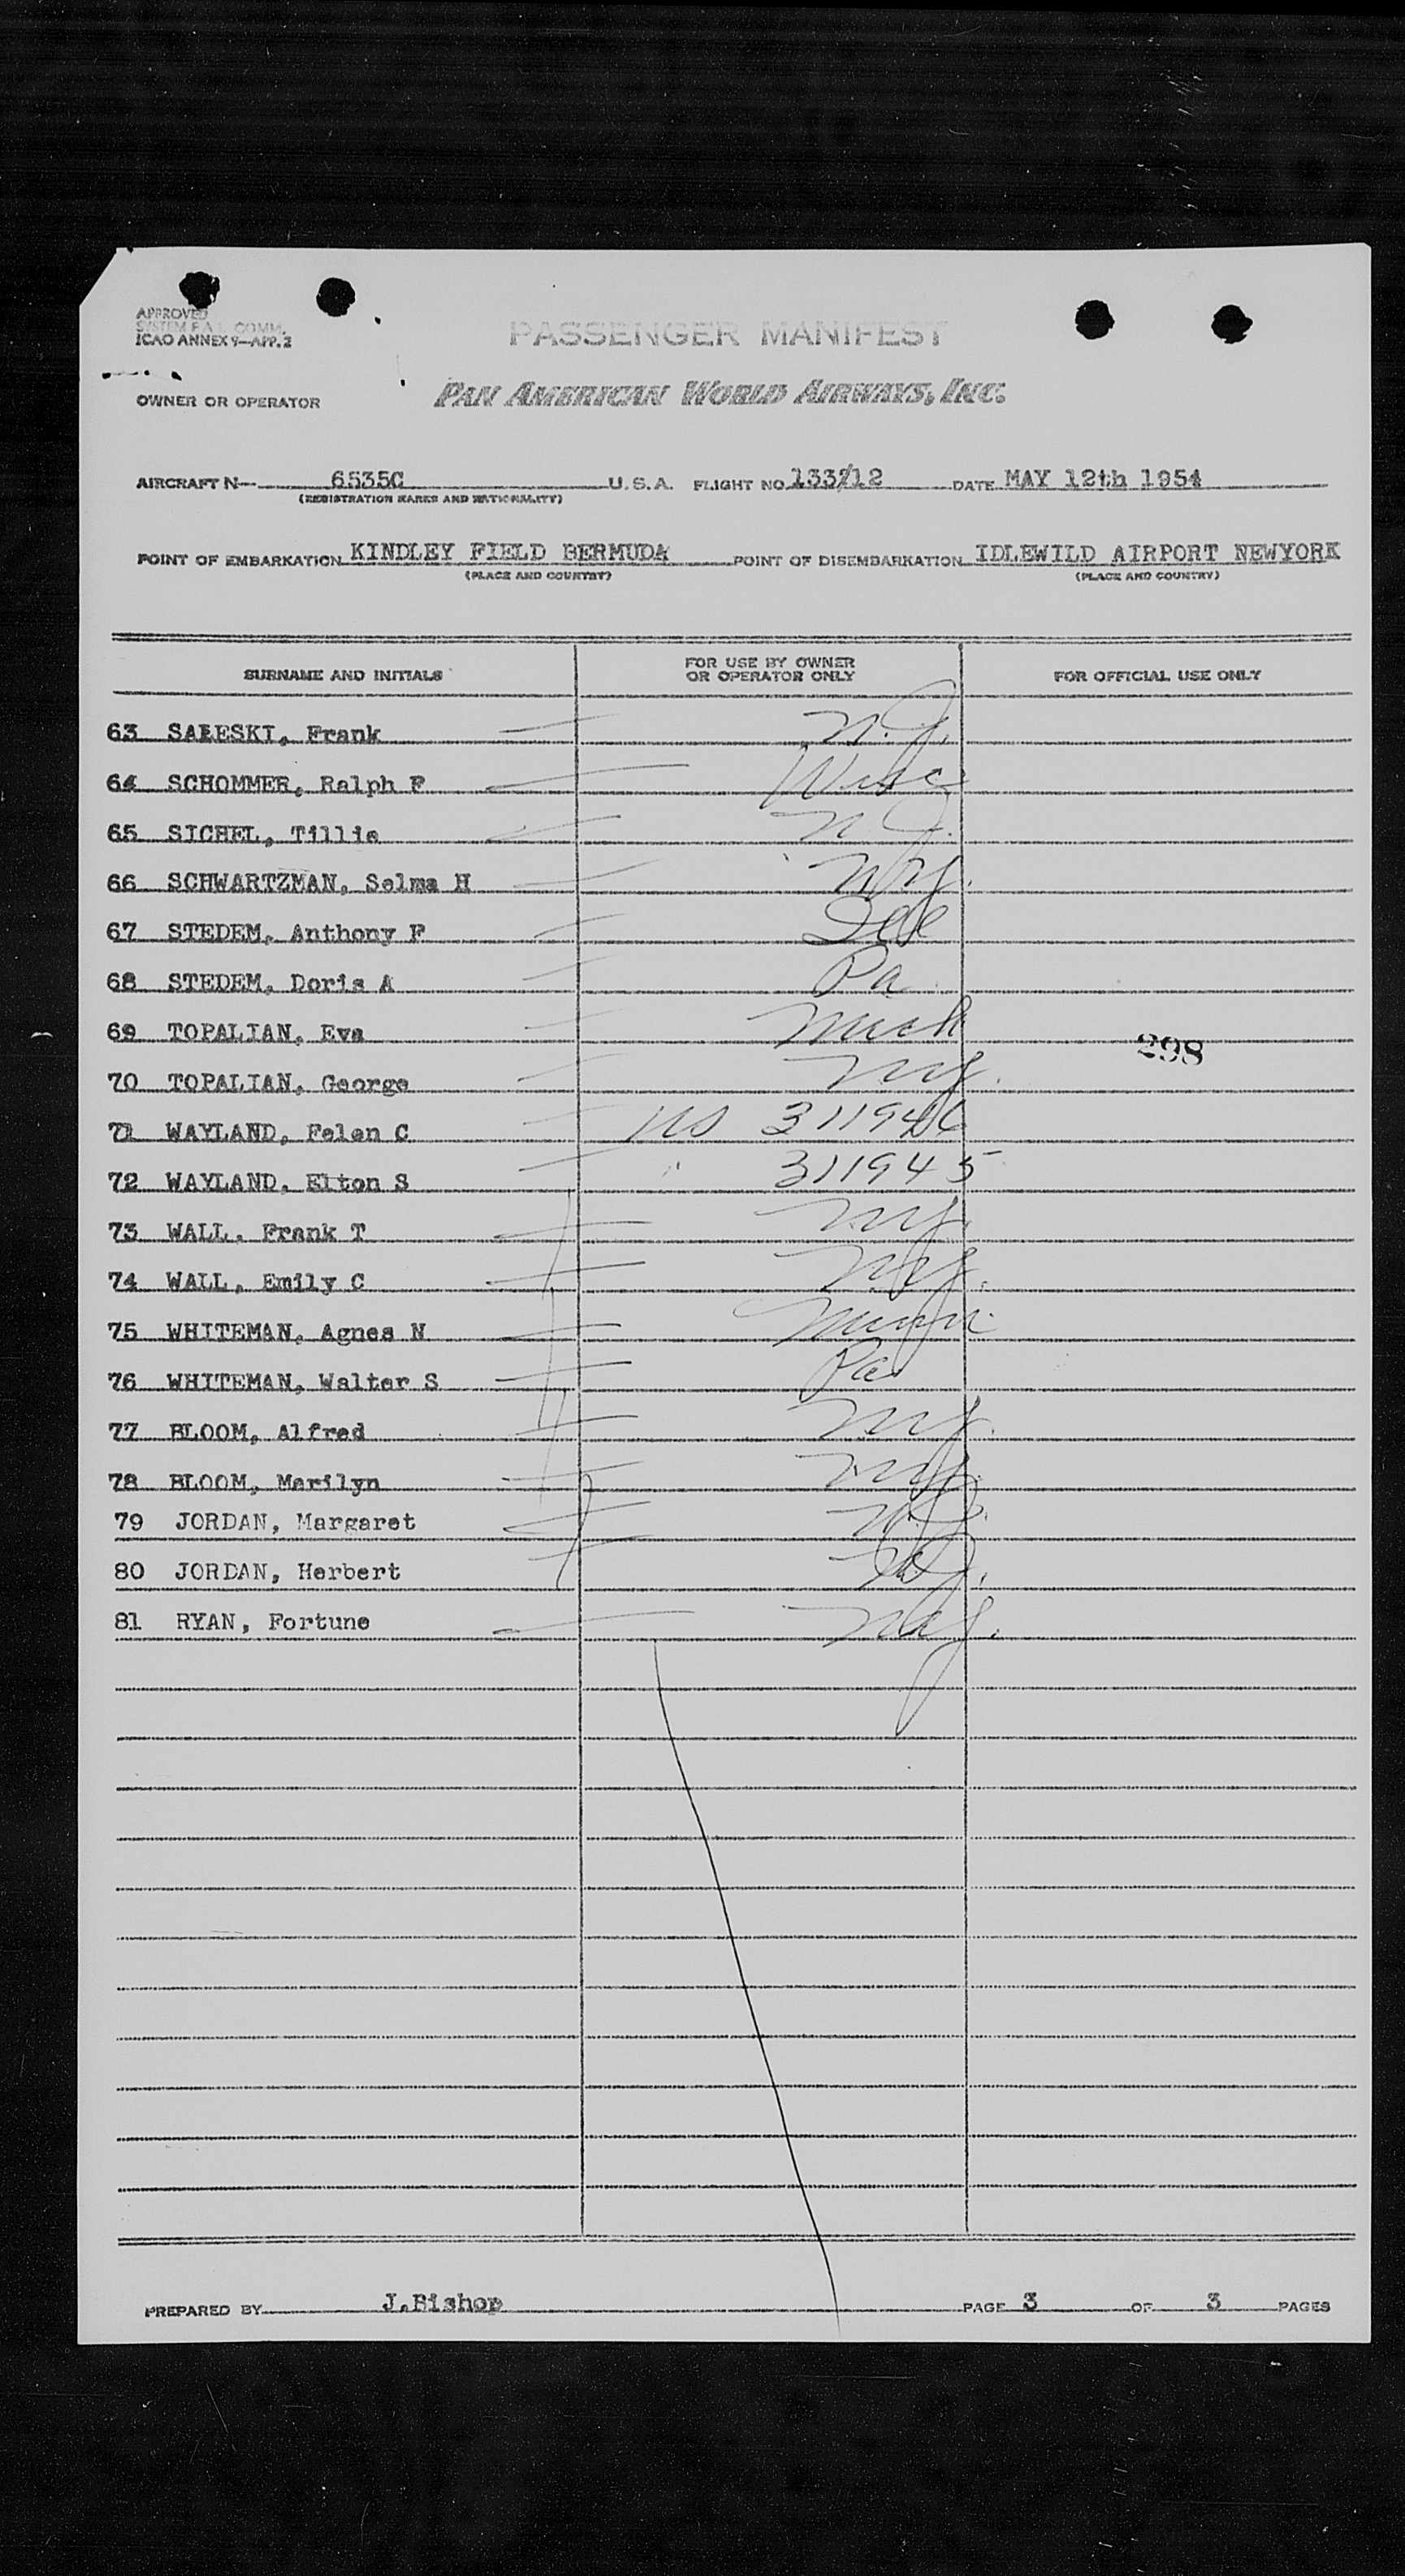 APPROVED
SYSTEM F.A.L. COMM.
ICAO ANNEX 9—APP. 2
PASSENGER MANIFEST
OWNER OR OPERATOR PAN AMERICAN WORLD AIRWAYS, INC.
AIRCRAFT N— 6535C U.S.A. FLIGHT NO. 133/12 DATE MAY 12th 1954
(REGISTRATION MARKS AND NATIONALITY)
POINT OF EMBARKATION KINDLEY FIELD BERMUDA POINT OF DISEMBARKATION IDLEWILD AIRPORT NEWYORK
(PLACE AND COUNTRY) (PLACE AND COUNTRY)
SURNAME AND INITIALS FOR USE BY OWNER OR OPERATOR ONLY FOR OFFICIAL USE ONLY
63 Frank N.J.
64 SCHOMMER, Ralph F Wisc
65 SICHEL, Tillie N.J.
66 SCHWARTZMAN, Selma H N.Y.
67 STEDEM, Anthony F
68 STEDEM, Doris A Pa
69 TOPALIAN, Eva Mich
70 TOPALIAN, George NY.
298
71 WAYLAND, Felen C US 311946
72 WAYLAND, Elton S 311945
73 WALL, Frank T NY.
74 WALL, Emily C NY.
75 WHITEMAN, Agnes N Minn.
76 WHITEMAN, Walter S Pa
77 BLOOM, Alfred NY.
78 BLOOM, Marilyn NY.
79 JORDAN, Margaret N.J.
80 JORDAN, Herbert
81 RYAN, Fortune NY.
PREPARED BY J.Bishop PAGE 3 OF 3 PAGES